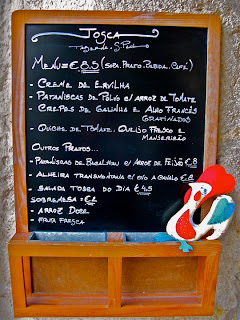 TOSCA
MENU = € 8.5 (SOPA, PRATO, BEBIDA, CAFÉ)
- CREME DE ERVILHA
- PATANISCAS DE POLVO C/ ARROZ DE TOMATE
- CREPES DE GALINHA E ALHO FRANCÊS
GRATINADOS
- QUICHE DE TOMATE, QUEIJO FRESCO E
MANJERICÃO
OUTROS PRATOS...
- PATANISCAS DE BACALHAU C/ ARROZ DE FEIJÃO € 8
- ALHEIRA TRANSMONTANA C/ OVO A CAVALO € 8
- SALADA TOSCA DO DIA € 4,5
SOBREMESA = € 2
- ARROZ DOCE
- FRUTA FRESCA